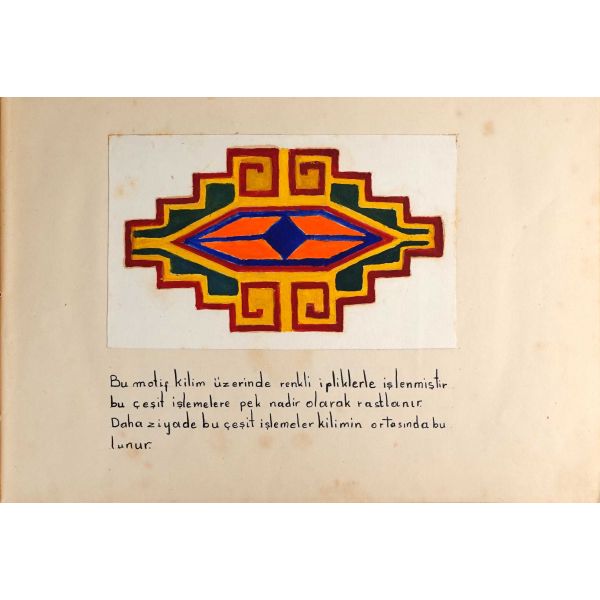 Bu motif kilim üzerinde renkli ipliklerle işlenmiştir
bu çeşit işlemelere pek nadir olarak rastlanır.
Daha ziyade bu çeşit işlemeler kilimin ortasında bu
lunur.